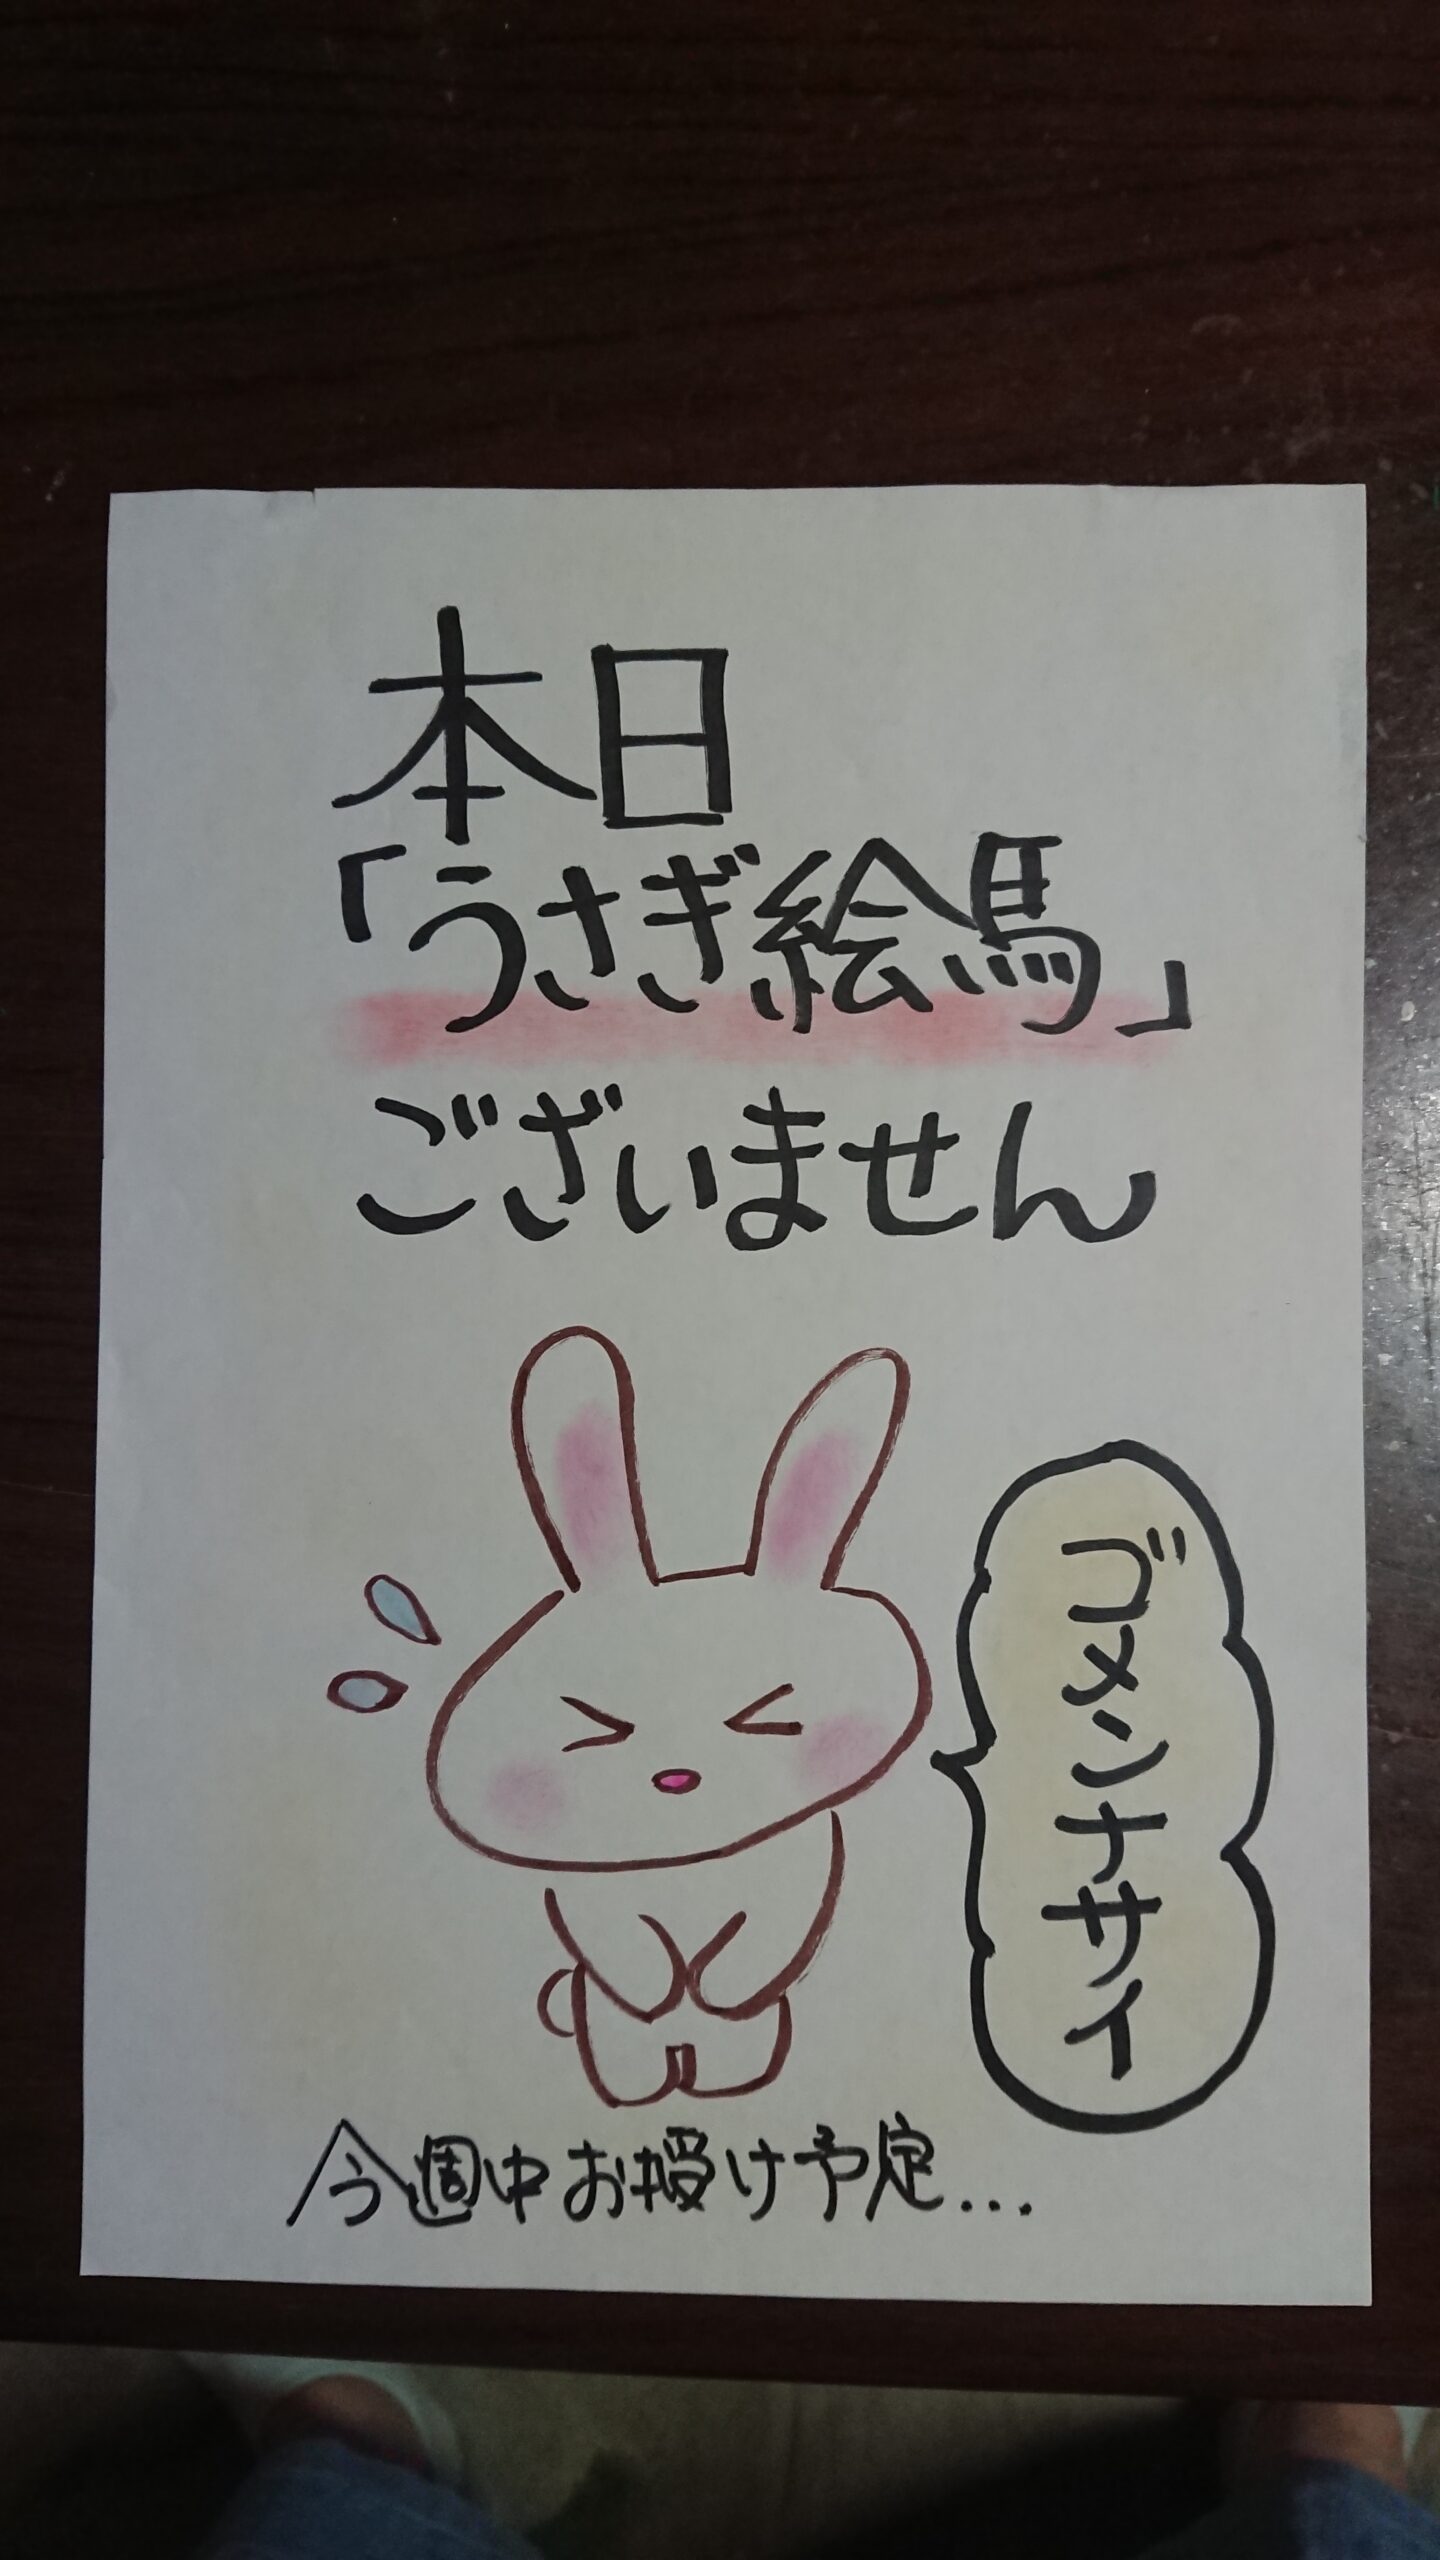 本日
「うさぎ絵馬」
ございません
ゴメンナサイ
今週中お授け予定...